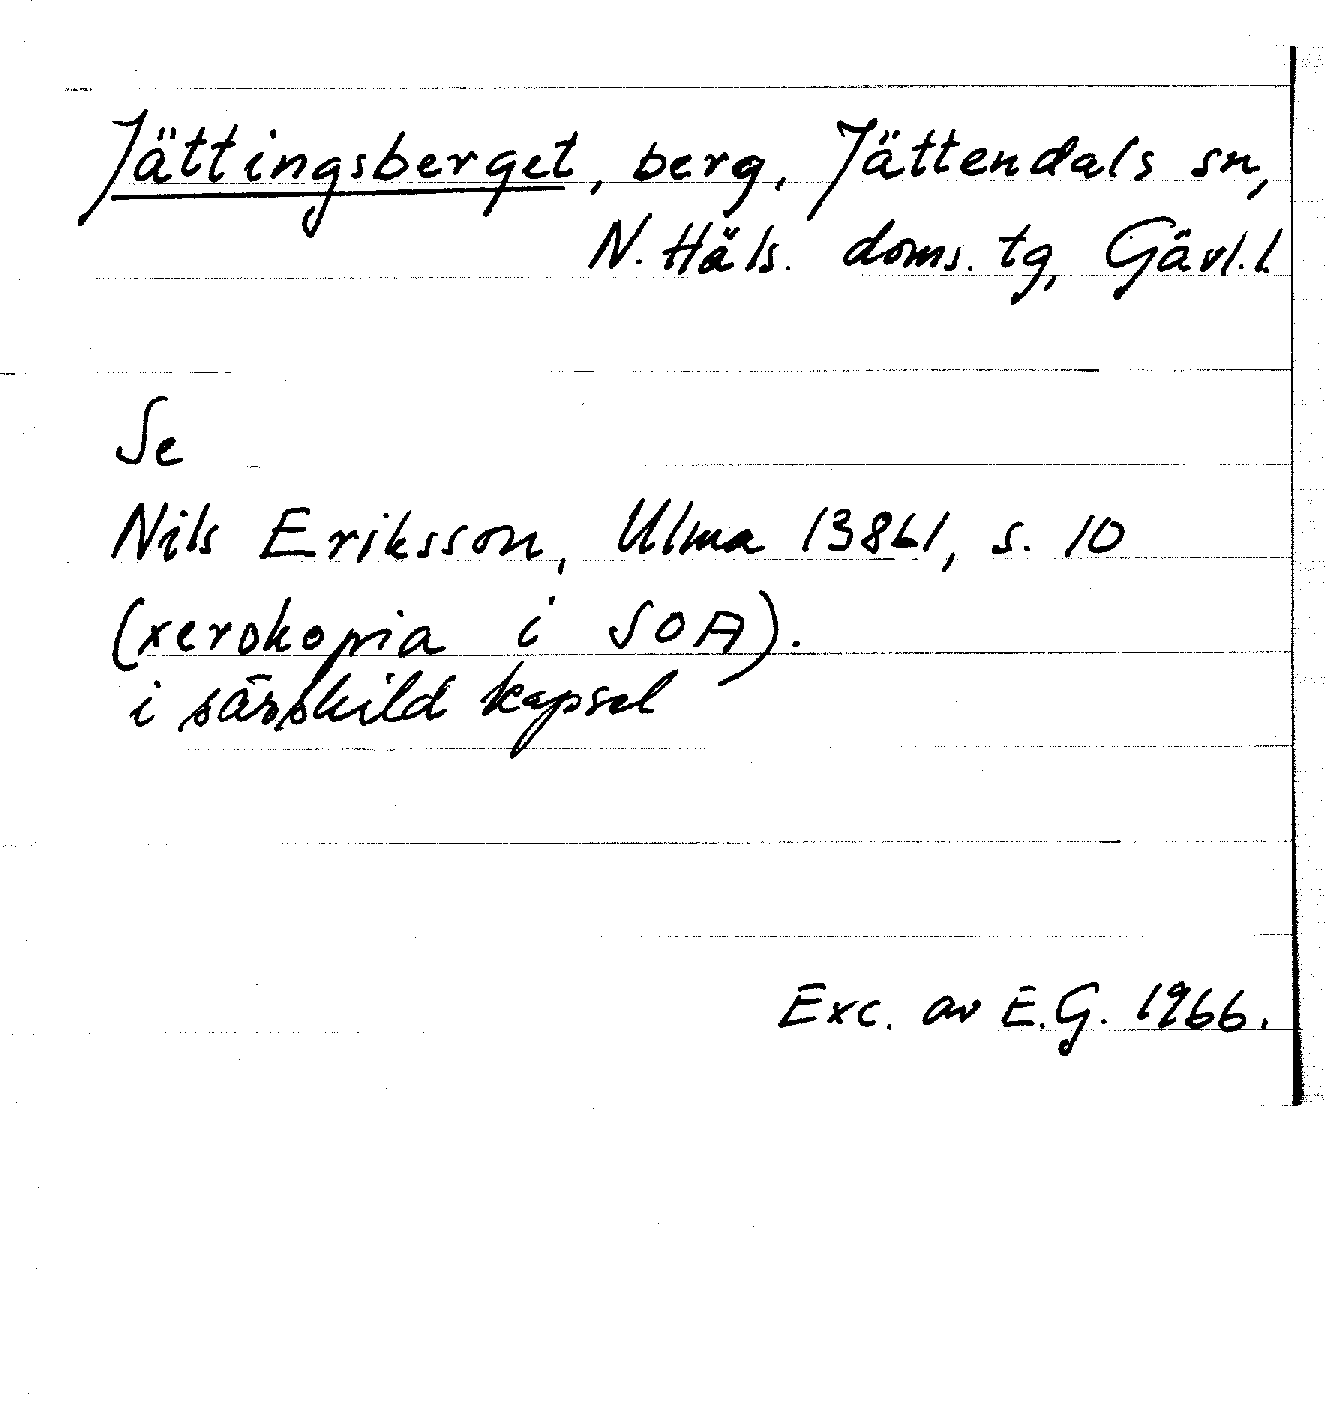 Jättingsberget, berg, Jättendals sn,
N. Häls. doms. tg, Gävl.l.
Se
Nils Eriksson, Ulma 13861, s. 10
(xerokopia i SOA).
i särskild kapsel
Exc. av E.G. 1966.